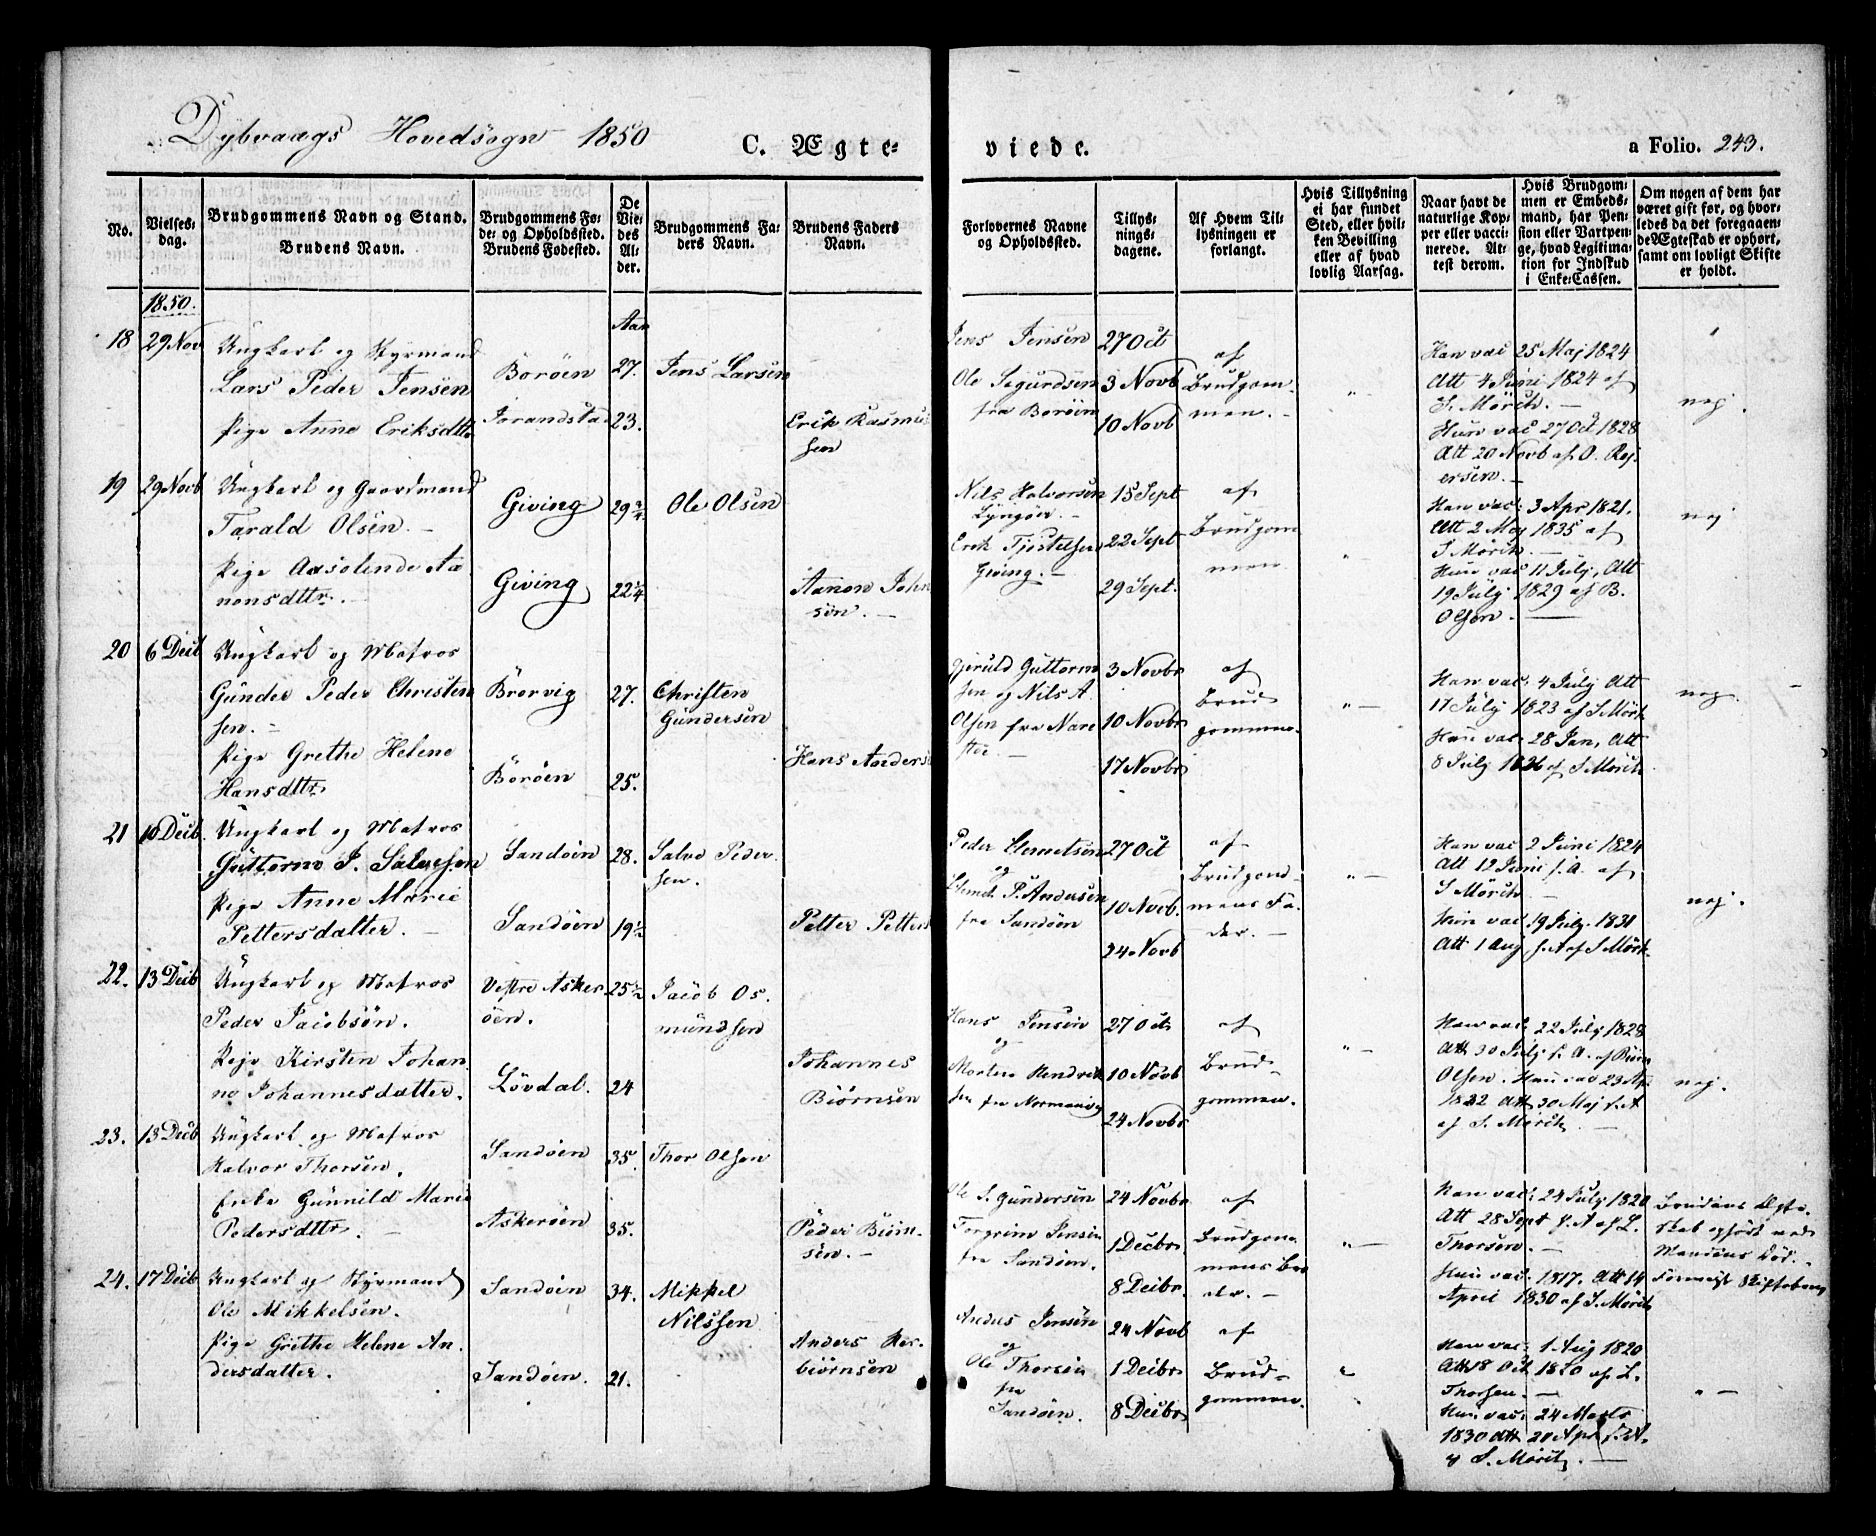 Dybvaags Hovedsogn 1850
C. Ægte-
viede.
a Folio. 243.
No.
Vielses-
dag.
Brudgommens Navn og Stand.
Brudens Navn.
Brudgommens Fø-
de- og Opholdssted.
Brudens Fødested.
De
Vie-
des
Al-
der.
Brudgommens Fa-
ders Navn.
Brudens Faders
Navn.
Forlovernes Navne
og Opholdssted.
Tillys-
nings-
dagene.
Af Hvem Til-
lysningen er
forlangt.
Hvis Tillysning
ei har fundet
Sted, eller hvil-
ken Bevilling
eller af hvad
lovlig Aarsag.
Naar havt de
naturlige Kop-
per eller vacci-
nerede. At-
test derom.
Hvis Brudgom-
men er Embeds-
mand, har Pen-
sion eller Vartpen-
ge, hvad Legitima-
tion for Indskud
i Enke-Cassen.
Om nogen af dem har
været gift før, og hvor-
ledes da det foregaaen-
de Ægteskab er ophørt,
samt om lovligt Skifte
er holdt.
1850.
Aar
18
29 Nov
Ungkarl og Styrmand
Lars Peder Jensen
Pige Anne Eriksdttr
Borøen
27.
Jens Larsen
23.
Erik Rasmus
sen
Jens Jensen
Ole Sigurdsen
fra Borøen
27 Oct
3 Novb
10 Novb
af
Brudgom
men. —
Han vac 25 Maj 1824
Att 4 Juni 1824 af
S. Mörch. —
Hun vac 27 Oct 1828
Att 20 Novb af O. Rej
ersen. —
nej.
19
29 Novb
Ungkarl og Gaardmand
Tarald Olsen. —
Pige Aasolende Aa
nonsdttr. —
Giving
29 3/4
Ole Olsen
Giving
22 1/4
Aanon John
sen. —
Nils Halvorsen
Lyngøer.
Erik Tjostelsen
Giving. —
15 Sept
22 Sept
29 Sept.
af
Brudgom
men
" —
Han vac: 3 Apr 1821.
Att 2 Maj 1835 af
S Mörch. —
Hun vac 11 July, Att
19 July 1829 af B.
Olsen. —
nej
20
6 Decb
Ungkarl og Matros
Gunder Peder Christen
sen. —
Pige Grethe Helene
Hansdttr
27.
Christen
Gundersen
Borøen
25.
Hans Anders
Gjeruld Guttorm
sen og Nils A.
Olsen fra Nare
støe —
3 Novbr
10 Novbr
17 Novbr
af
Brud
gommen
" —
Han vac: 4 July Att
17 July 1823 af S Mörk
Hun vac: 28 Jan, Att
8 July 1826 af S Mörch
nej.
21
10 Decb.
Ungkarl og Matros
Guttorm P. Salvesen
Pige Anne Marie
Pettersdatter. —
Sandøen
28.
Salve Peder
sen.
Sandøen
19 1/2
Petter Petters
Peder Clemetsen
og
Clemet P. Andersen
fra Sandøen
27 Oct
10 Novb.
24 Novb
af
Brudgom-
mens Fa-
der. —
" —
Han vac 2 Juni 1824
Att 12 Juni s. A. af
S Mörch —
Hun vac 19 July 1831
Att 1 Aug s. A af S Mörk
nej.
22.
13 Decb
Ungkarl og Matros
Peder Jacobsøn.
Pige Kirsten Johan
ne Johannesdatter.
Vestre Asker
øen.
25 1/2
Jacob Os.
mundsen
Løvdal.
24
Johannes
Biørnsen
Hans Jensen
og
Morten Hendrik
sen fra Normanvig
27 Oct
10 Novb
24 Novbr
af
Brud-
gommen.
" —
Han vac: 22 July 1828
Att 30 July s. A. af Biørn
Olsen. Hun vac 23 Apr
1832 Att 30 Maj s. A
af S. Mörch —
nej.
23.
13 Decb
Ungkarl og Matros
Halvor Thorsen.
Enke Gunnild Marie
Pedersdttr. —
Sandøen
35.
Thor Olsen
Askerøen
35.
Peder Biørn-
sen. —
Ole S. Gundersen
Torgrim Jensen
fra Sandøen.
24 Novbr
1 Decbr
8 Decbr.
af
Brudgom
mens Bro
der. —
" —
Han vac: 24 July 1820
Att 28 Sept s. A af L.
Thorsen. —
Hun vac. 1817. Att 14
April 1830 af S. Mörch
Brudens Ægte.
skab ophørt ved
Mandens Død. —
24.
17 Decb
Ungkarl og Styrmand
Ole Mikkelsen.
Pige Grethe Helene An
dersdatter.
Sandøen
34.
Mikkel
Nilssen
Sandøen.
21.
Anders Her
biørnsen
Anders Jensen
og
Ole Thorsen
fra
Sandøen.
24 Novb
1 Decbr
8 Decbr
af
Brud-
gommen.
"
Han vac: 1 Aug 1820
Att 18 Oct 1820 af L.
Thorsen. —
Hun vac: 24 Marts
1830 Att 20 Apr s. A.
af S. Mörch —
" —